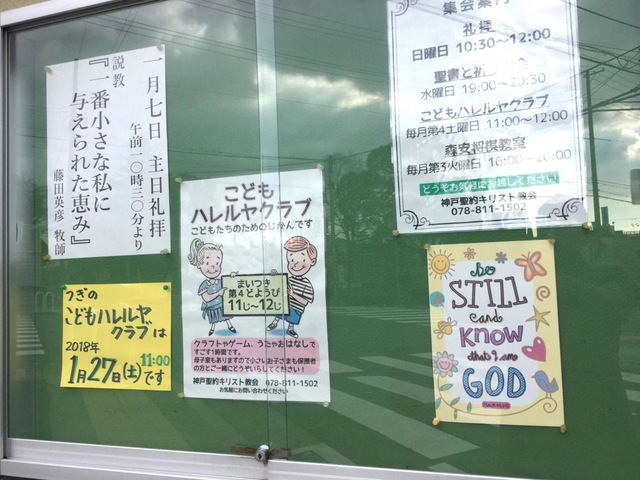 一月七日 主日礼拝
午前一〇時三〇分より
説教
『一番小さな私に
与えられた恵み』
藤田英彦 牧師
つぎの
こどもハレルヤ
クラブは
2018年
11:00
1月27日(土)です
こども
ハレルヤクラブ
こどもたちのためのじかんです
まいつき
第4どようび
11じ~12じ
クラフトやゲーム、うたやおはなしで
すごす1時間です。
母子室もありますので小さいお子さまも保護者
の方とご一緒にどうぞいらしてください!
神戸聖約キリスト教会 078-811-1502
お気軽にお問い合わせください
集会案内
礼拝
日曜日 10:30~12:00
聖書と祈
水曜日 19:00~20:30
こどもハレルヤクラブ
毎月第4土曜日 11:00~12:00
森安将棋教室
毎月第3火曜日 16:00~20:00
どうぞお気軽にお越しください
神戸聖約キリスト教会
078-811-1502
Be
STILL
and
KNOW
that I am
GOD